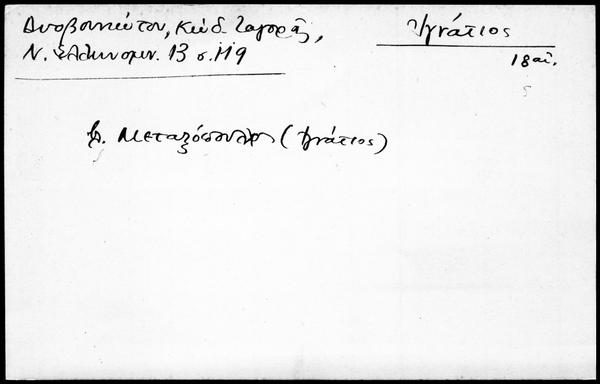 Δυοβουνιώτου, Κώδ. Ζαγορᾶς,
Ν. Ἑλληνομν. 13 σ. 119
Ἰγνάτιος
18 αἰ.
βλ. Μεταξόπουλος (Ἰγνάτιος)